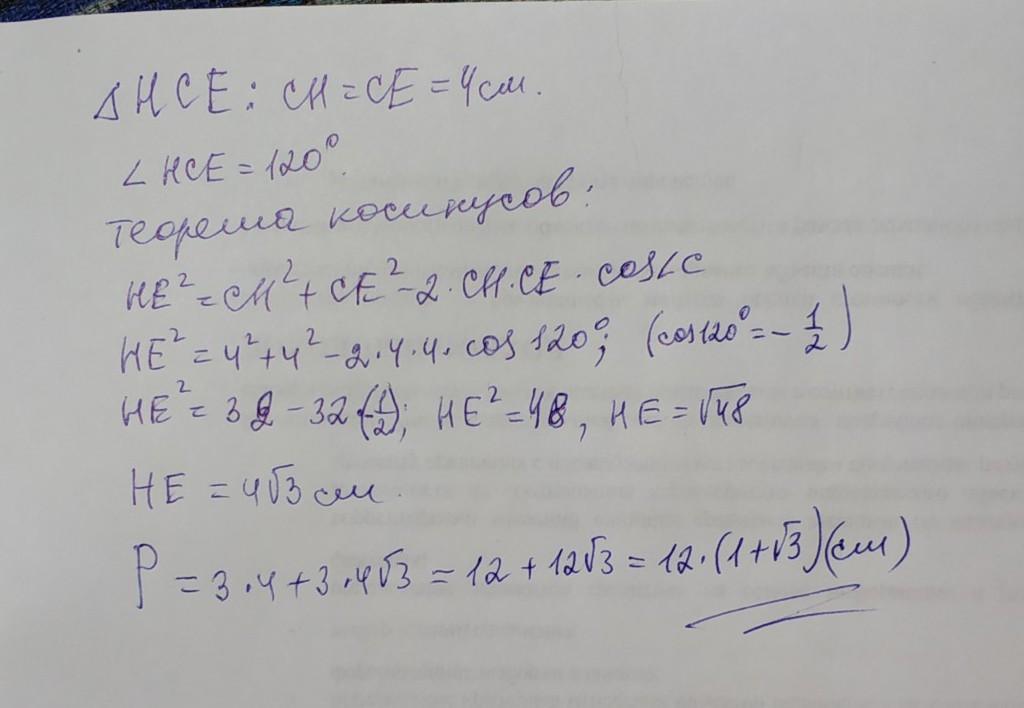 Δ HCE: CH = CE = 4см.
∠ HCE = 120°.
теорема косинусов:
HE² = CH² + CE² - 2·CH·CE·cos∠C
HE² = 4² + 4² - 2·4·4·cos 120°; (cos120° = - 1/2)
HE² = 32 - 32(-1/2); HE² = 48, HE = √48
HE = 4√3 см.
P = 3·4 + 3·4√3 = 12 + 12√3 = 12·(1+√3)(см)